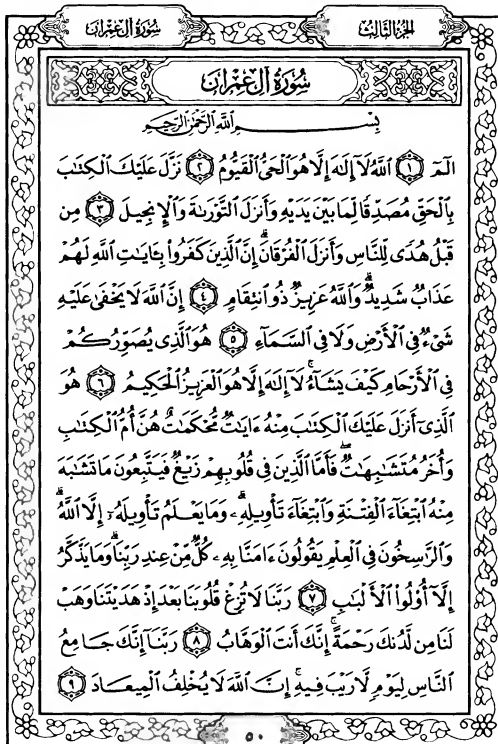 سُورَةُ آلِ عِمْرَانَ
الجُزْءُ الثَّالِثُ
سُورَةُ آلِ عِمْرَانَ
بِسْمِ اللَّهِ الرَّحْمَٰنِ الرَّحِيمِ
الٓمٓ ١ ٱللَّهُ لَآ إِلَٰهَ إِلَّا هُوَ ٱلْحَىُّ ٱلْقَيُّومُ ٢ نَزَّلَ عَلَيْكَ ٱلْكِتَٰبَ
بِٱلْحَقِّ مُصَدِّقًا لِّمَا بَيْنَ يَدَيْهِ وَأَنزَلَ ٱلتَّوْرَىٰةَ وَٱلْإِنجِيلَ ٣ مِن
قَبْلُ هُدًى لِّلنَّاسِ وَأَنزَلَ ٱلْفُرْقَانَۗ إِنَّ ٱلَّذِينَ كَفَرُوا۟ بِـَٔايَٰتِ ٱللَّهِ لَهُمْ
عَذَابٌ شَدِيدٌۗ وَٱللَّهُ عَزِيزٌ ذُو ٱنتِقَامٍ ٤ إِنَّ ٱللَّهَ لَا يَخْفَىٰ عَلَيْهِ
شَىْءٌ فِى ٱلْأَرْضِ وَلَا فِى ٱلسَّمَآءِ ٥ هُوَ ٱلَّذِى يُصَوِّرُكُمْ
فِى ٱلْأَرْحَامِ كَيْفَ يَشَآءُۚ لَآ إِلَٰهَ إِلَّا هُوَ ٱلْعَزِيزُ ٱلْحَكِيمُ ٦ هُوَ
ٱلَّذِىٓ أَنزَلَ عَلَيْكَ ٱلْكِتَٰبَ مِنْهُ ءَايَٰتٌ مُّحْكَمَٰتٌ هُنَّ أُمُّ ٱلْكِتَٰبِ
وَأُخَرُ مُتَشَٰبِهَٰتٌۖ فَأَمَّا ٱلَّذِينَ فِى قُلُوبِهِمْ زَيْغٌ فَيَتَّبِعُونَ مَا تَشَٰبَهَ
مِنْهُ ٱبْتِغَآءَ ٱلْفِتْنَةِ وَٱبْتِغَآءَ تَأْوِيلِهِۦۗ وَمَا يَعْلَمُ تَأْوِيلَهُۥٓ إِلَّا ٱللَّهُۗ
وَٱلرَّٰسِخُونَ فِى ٱلْعِلْمِ يَقُولُونَ ءَامَنَّا بِهِۦ كُلٌّ مِّنْ عِندِ رَبِّنَاۗ وَمَا يَذَّكَّرُ
إِلَّآ أُو۟لُوا۟ ٱلْأَلْبَٰبِ ٧ رَبَّنَا لَا تُزِغْ قُلُوبَنَا بَعْدَ إِذْ هَدَيْتَنَا وَهَبْ
لَنَا مِن لَّدُنكَ رَحْمَةًۚ إِنَّكَ أَنتَ ٱلْوَهَّابُ ٨ رَبَّنَآ إِنَّكَ جَامِعُ
ٱلنَّاسِ لِيَوْمٍ لَّا رَيْبَ فِيهِۚ إِنَّ ٱللَّهَ لَا يُخْلِفُ ٱلْمِيعَادَ ٩
٥٠